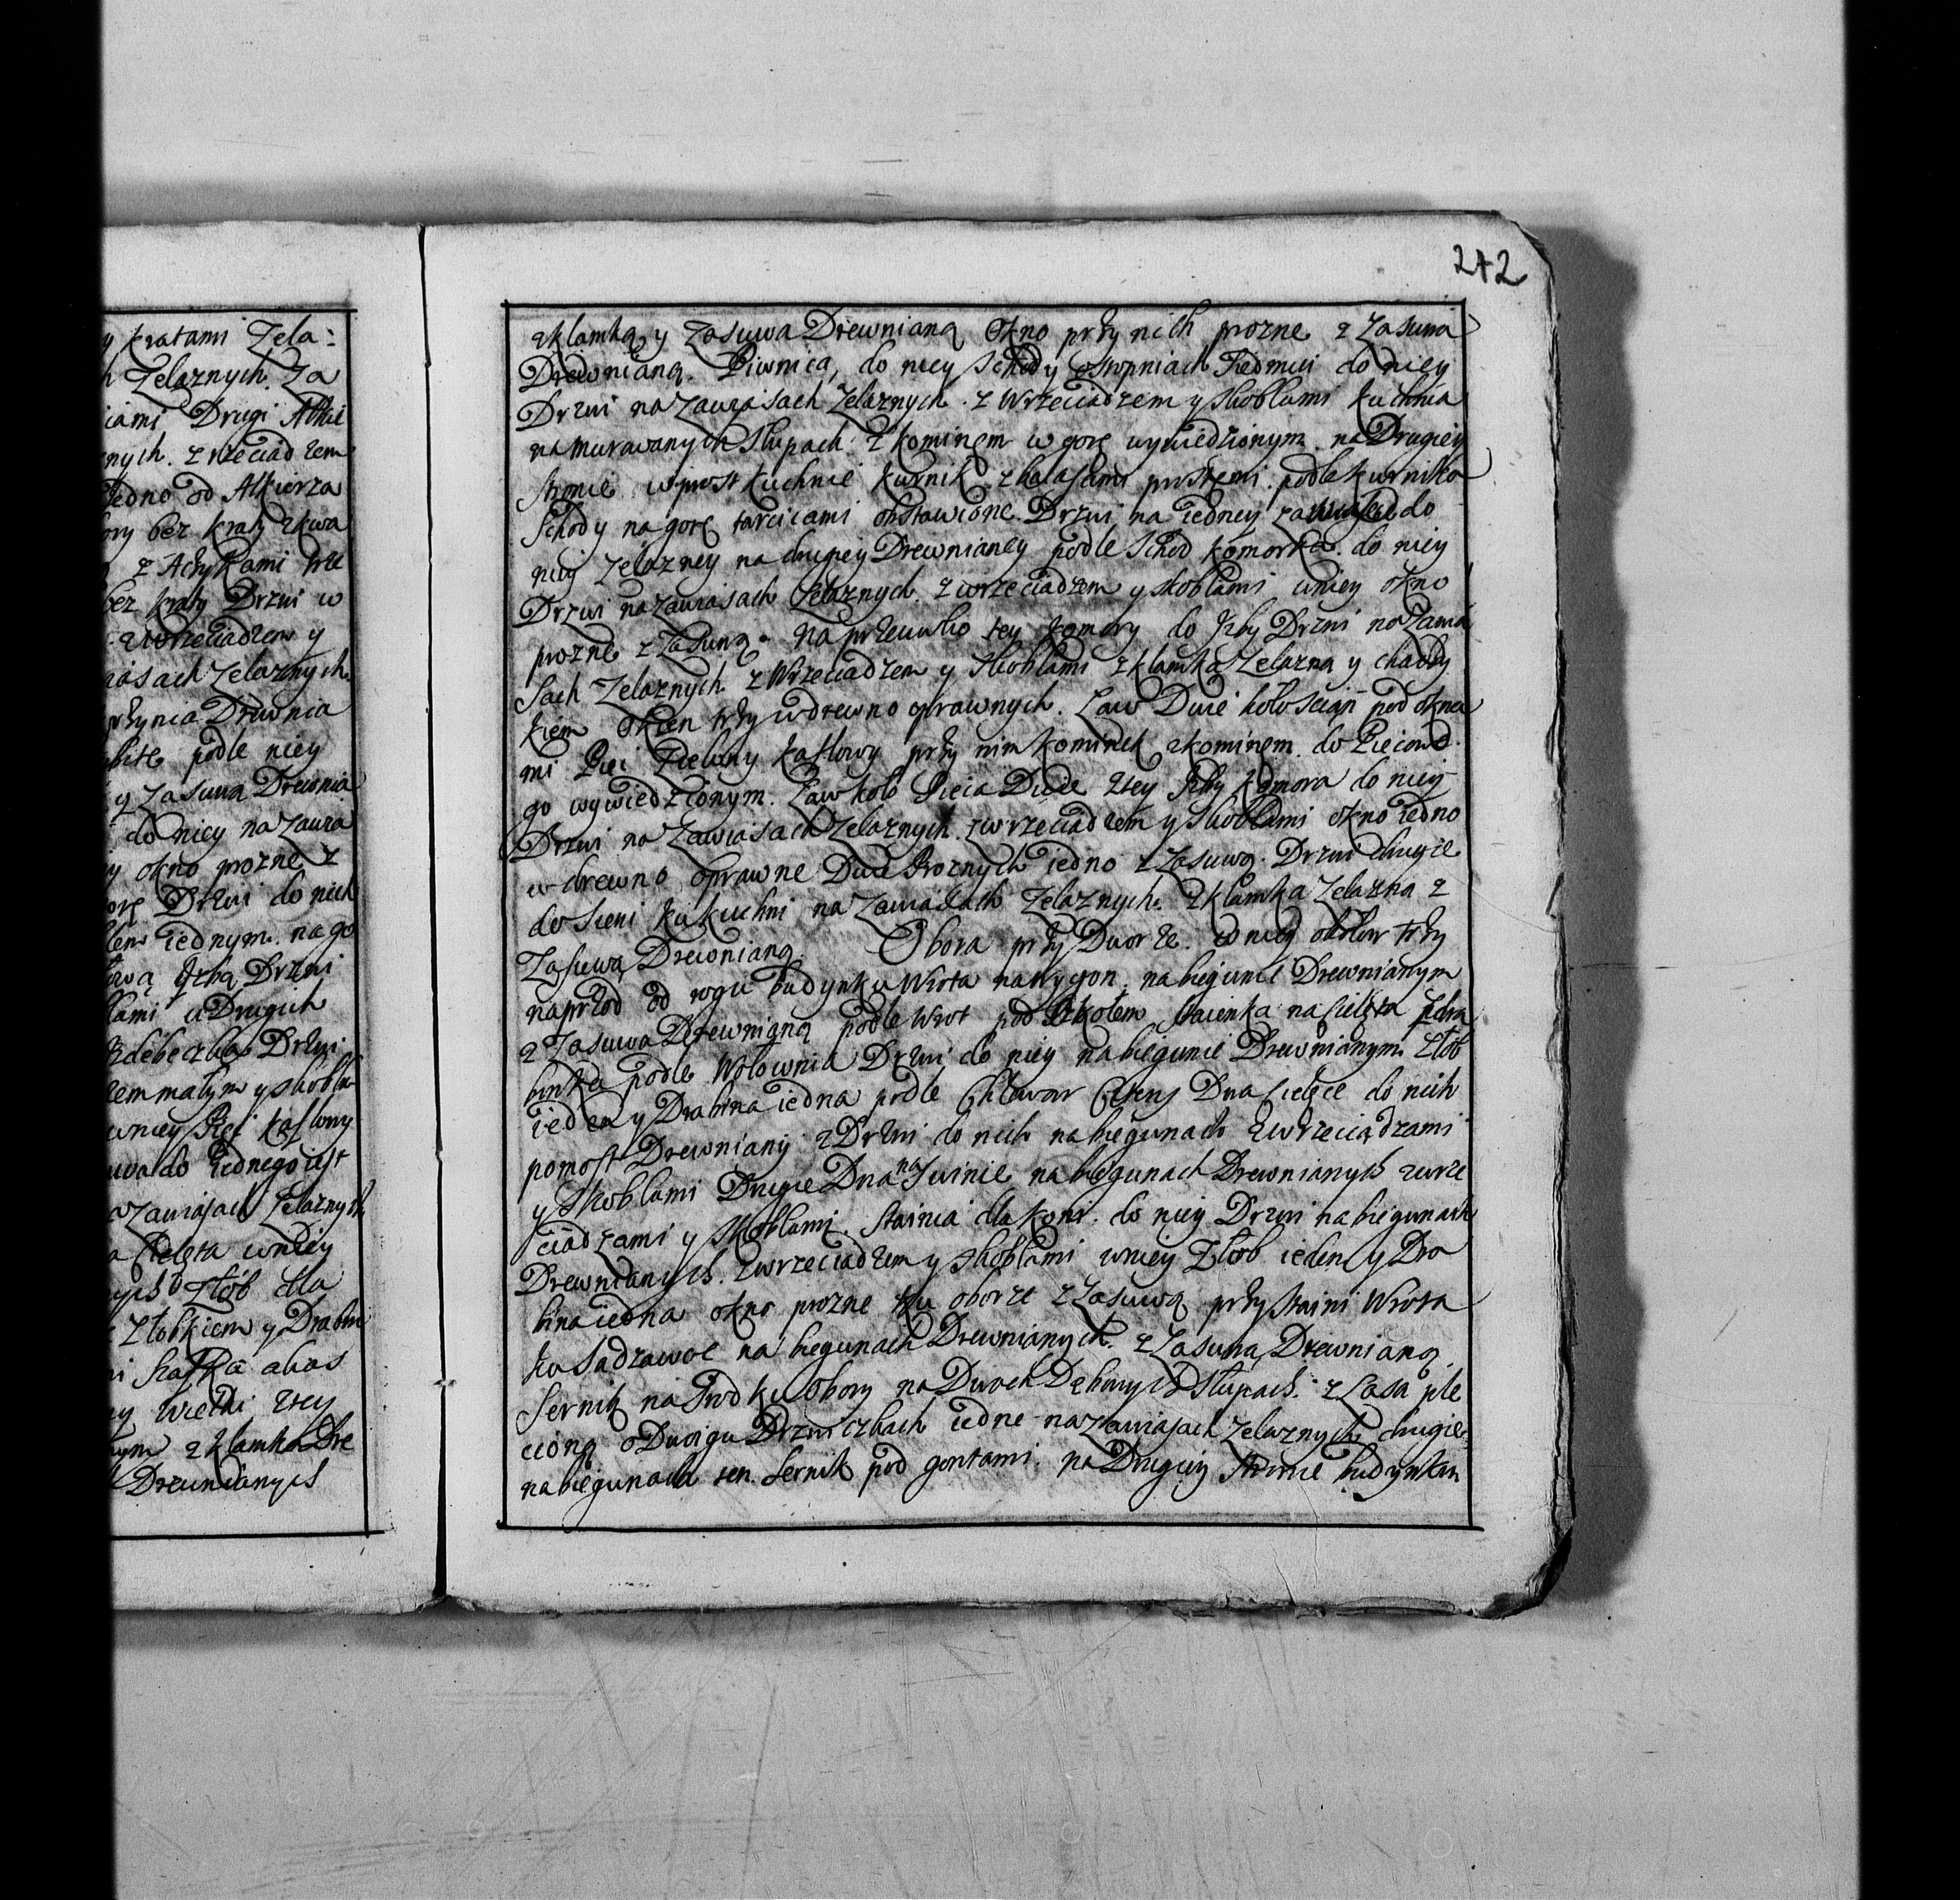 y kratami Zela:
h Zelaznych. Za
iami Drugi Alkie
nych. z rzeciadzem
iedno od Alkierza
ory bez kraty zkwa
bez kraty Drzwi w
zwrzeciadzem y
iasach Zelaznych.
przynia Drewnia
obite podle niey
y Zasuwą Drewnia
do niey na Zawia
y okno prozne z
orę Drzwi do nich
lem iednym. na go
ową Izbą Drzwi
lami u Drugich
Izdebeczka Drzwi
zem małym y skobla
wniey Piec kaflowy
uwa do iednego iest
na Zawiasach Zelaznych
a Cielęta wniey
ych Złób dla
z Złobkiem y Drabin
y Wielki ztey
nym zklamką Dre
Drewnianych
242
zklamką y Zasuwa Drewnianą Okno przy nich prozne z Zasuwa
Drewnianą. Piwnica, do niey Schody o Stopniach Siedmiu do niey
Drzwi na Zawiasach Zelaznych. z Wrzeciadzem y Skoblami kuchnia
na murowanych Słupach. z kominem w gorę wywiedzionym na Drugiey
stronie wprost kuchnie kurnik z balasami prostemi. podle kurnika
Schody na gorę tarcicami obstawione. Drzwi na iedney zawiasie do
niey Zelazney na drugiey Drewnianey podle Schod komorka. do niey
Drzwi na zawiasach Zelaznych. z wrzeciadzem y skoblami wniey okno
prozne z Zasuwą. naprzeciwko tey komory do Izby Drzwi na Zawia
sach Zelaznych z Wrzeciadzem y Skoblami zklamką Zelazną y chaczy
kiem Okien trzy w drewno oprawnych. Ław Dwie koło scian pod okna
mi Piec Zielony kaflowy przy nim kominek zkominem do Piecowe
go wywiedzionym. Ław koło Pieca Dwie ztey Izby komora do niey
Drzwi na Zawiasach Zelaznych. zwrzeciadzem y Skoblami okno iedno
w drewno oprawne Dwie Proznych iedno z Zasuwą. Drzwi drugie
do Sieni ku kuchni na Zawiasach Zelaznych. zklamka Zelazna z
Zasuwą Drewnianą. Obora przy Dworze. w niey okołow trzy
naprzod od rogu budynku Wrota na Wygon. na biegunie Drewnianym
z Zasuwa Drewnianą podle Wrot pod okołem stacienka na Cielęta zdra
binką podle Wołownia Drzwi do niey na biegunie Drewnianym Złob
ieden y Drabina iedna podle Chlewow Cztery Dwa Cielęce do nich
pomost Drewniany z Drzwi do nich na biegunach zwrzeciądzami
y Skoblami Drugie Dwa na Swinie na biegunach Drewnianych zwrze
ciądzami y Skoblami. Stainia dla koni. do niey Drzwi na biegunach
Drewnianych. zwrzeciadzem y skoblami wniey Złob ieden y Dra
bina iedna okno prozne ku oborze z Zasuwą przy staini Wrota
ku Sadzawce na biegunach Drewnianych. z Zasuwą Drewnianą
Sernik na Srodku Obory na Dwoch Dębowych Słupach. z Lasa ple
cioną o Dwoigu Drzwiczkach iedne na zawiasach Zelaznych drugie
na biegunach ten Sernik pod gontami. na Drugiey stronie budynku